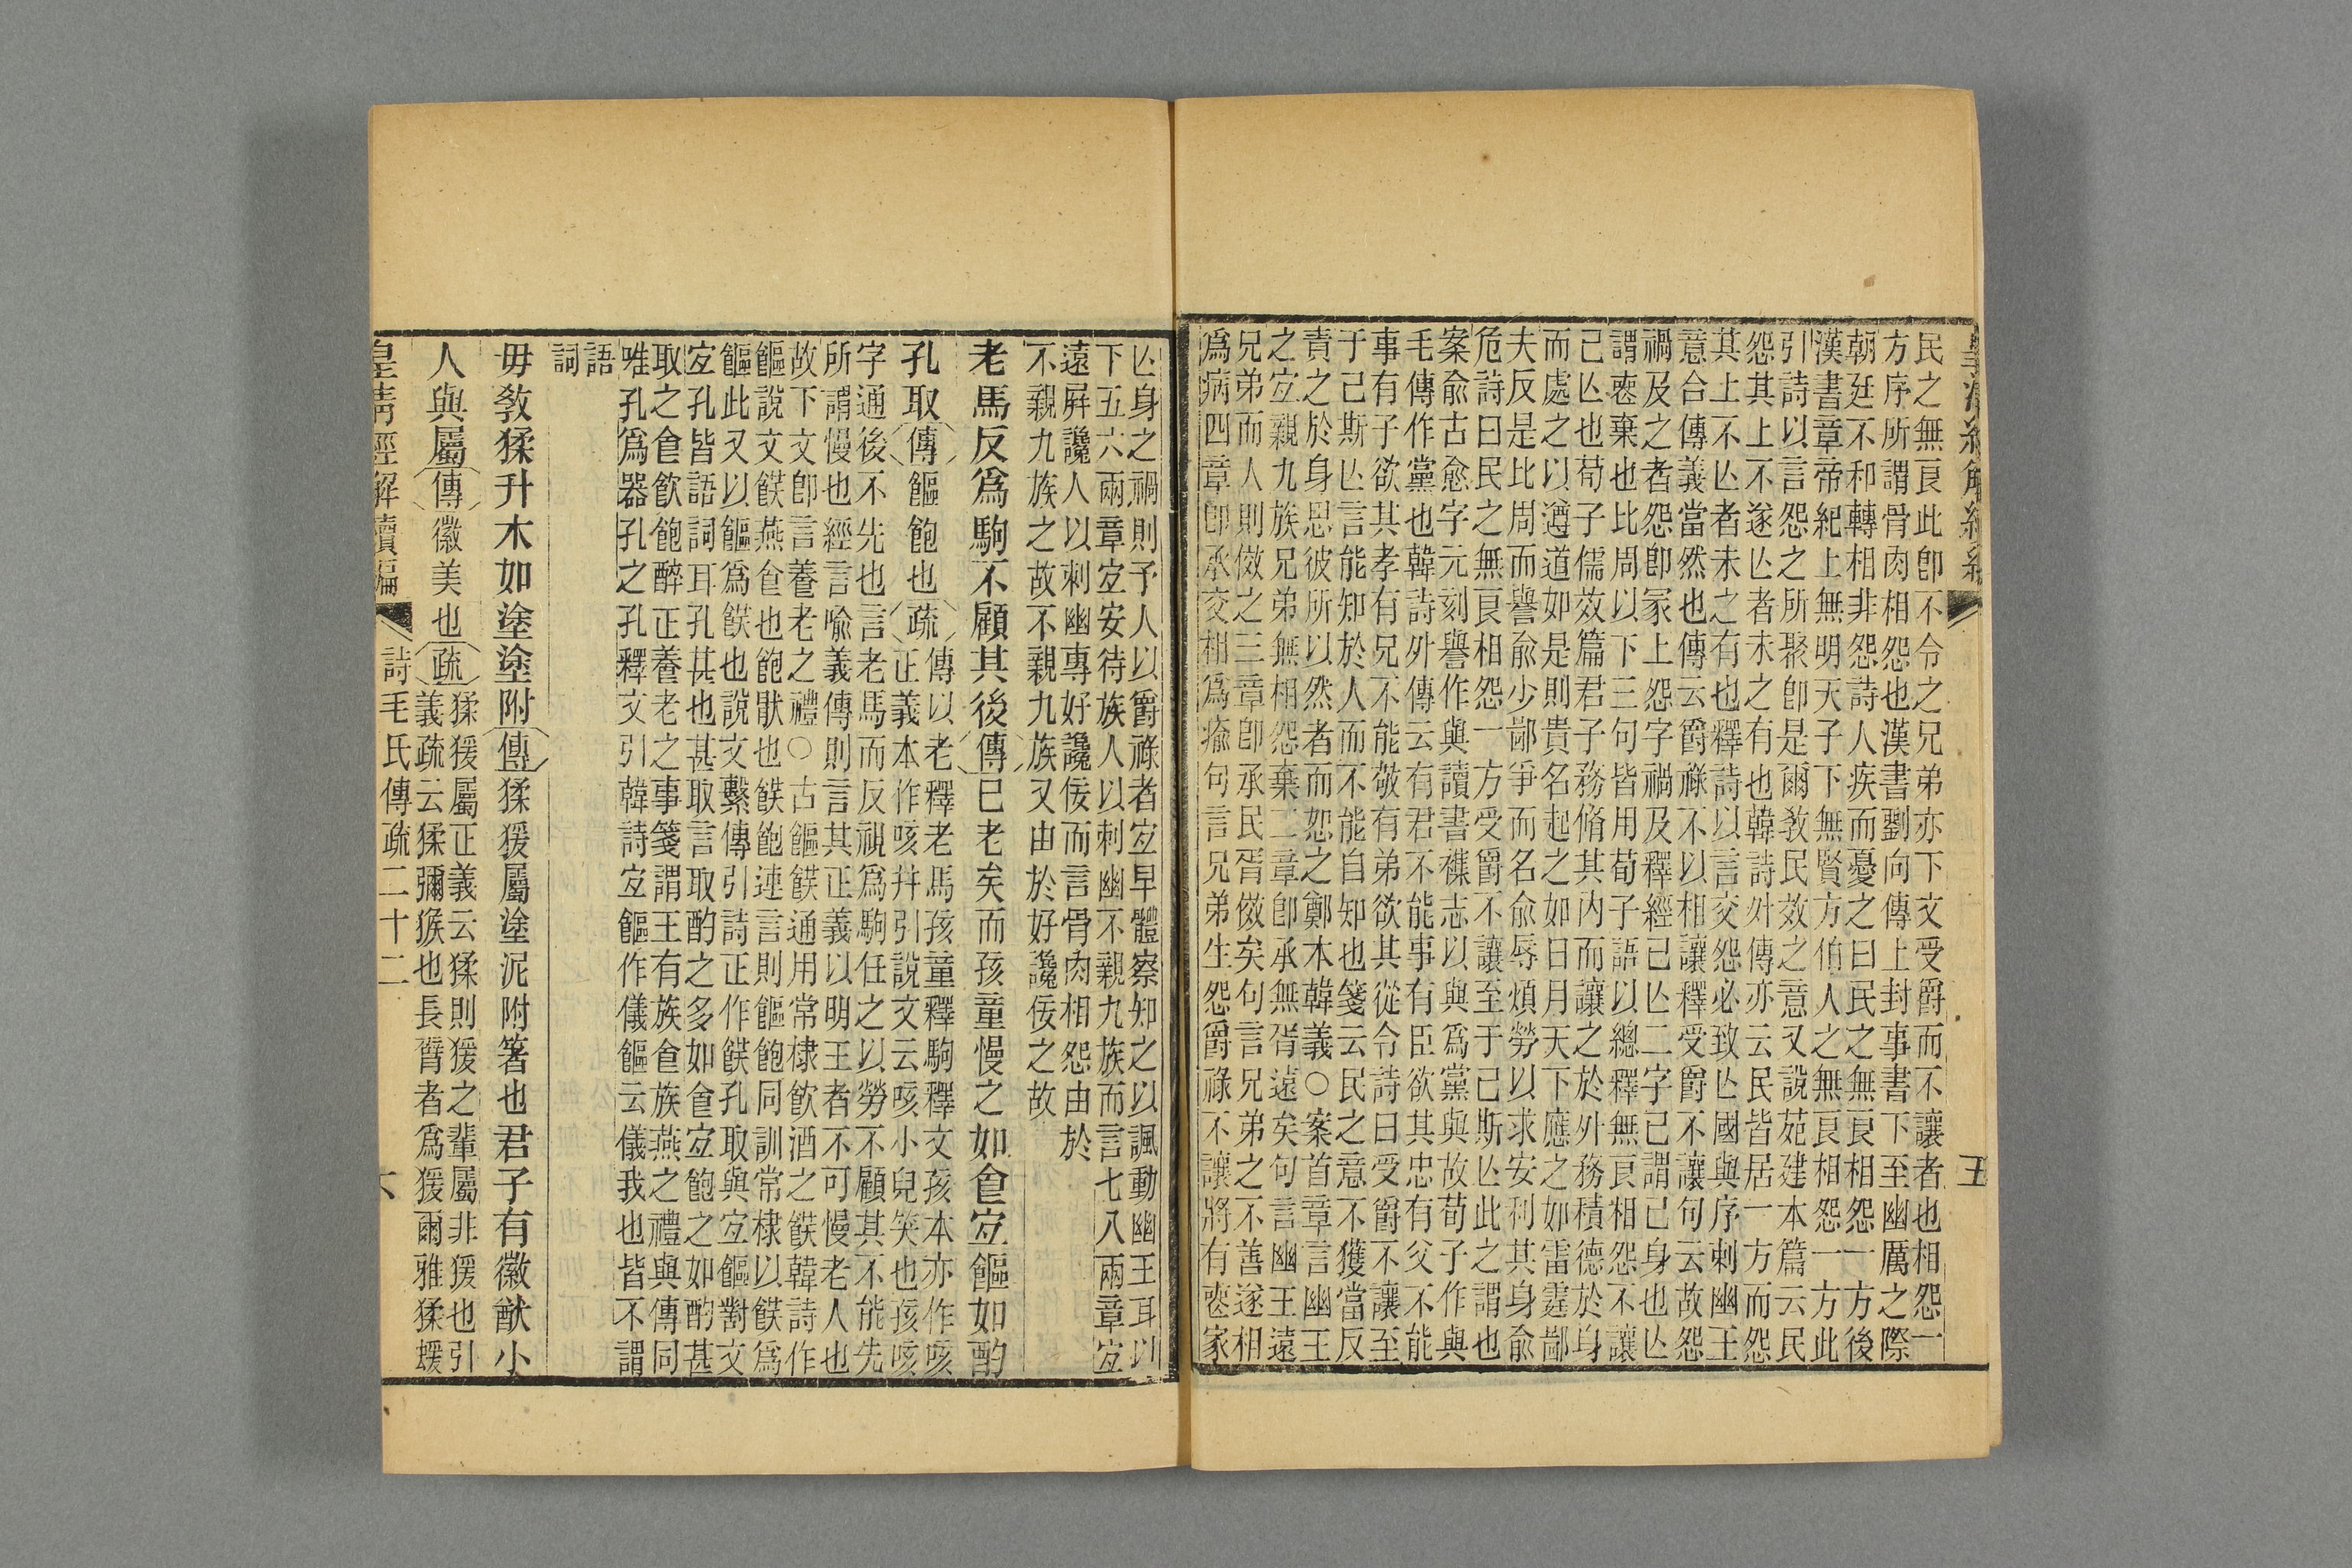 民之無良此卽不令之兄弟亦下文受爵而不讓者也相怨一
方序所謂骨肉相怨也漢書劉向傳上封事書下至幽厲之際
朝廷不和轉相非怨詩人疾而憂之曰民之無良相怨一方後
漢書章帝紀上無明天子下無賢方伯人之無良相怨一方此
引詩以言怨之所聚卽是爾敎民效之意又說苑建本篇云民
怨其上不遂亾者未之有也韓詩外傳亦云民皆居一方而怨
其上不亾者未之有也釋詩以言交怨必致亾國與序刺幽王
意合傳義當然也傳云爵祿不以相讓釋受爵不讓句云故怨
禍及之者怨卽冡上怨字禍及釋經已亾二字己謂己身也亾
謂䘮棄也比周以下三句皆用荀子語以總釋無良相怨不讓
己亾也荀子儒效篇君子務脩其内而讓之於外務積德於身
而處之以遵道如是則貴名起之如日月天下應之如雷霆鄙
夫反是比周而譽兪少鄙爭而名兪辱煩勞以求安利其身兪
危詩曰民之無良相怨一方受爵不讓至于己斯亾此之謂也
案兪古愈字元刻譽作與讀書襍志以與爲黨與故荀子作與
毛傳作黨也韓詩外傳云有君不能事有臣欲其忠有父不能
事有子欲其孝有兄不能敬有弟欲其從令詩曰受爵不讓至
于己斯亾言能知於人而不能自知也箋云民之意不獲當反
責之於身思彼所以然者而怨之鄭本韓義○案首章言幽王
之宐親九族兄弟無相怨棄二章卽承無胥遠矣句言幽王遠
兄弟而人則傚之三章卽承民胥傚矣句言兄弟之不善遂相
爲病四章卽承交相爲瘉句言兄弟生怨爵祿不讓將有䘮家
亾身之禍則予人以爵祿者宐早體察知之以諷動幽王耳以
下五六兩章宐安待族人以刺幽不親九族而言七八兩章宐
遠屛讒人以刺幽專好讒佞而言骨肉相怨由於
不親九族之故不親九族又由於好讒佞之故
老馬反爲駒不顧其後傳已老矣而孩童慢之如食宐饇如酌
孔取傳饇飽也疏傳以老釋老馬孩童釋駒釋文孩本亦作咳
正義本作咳幷引說文云咳小兒笑也孩咳
字通後不先也言老馬而反視爲駒任之以勞不顧其不能先
所謂慢也經言喻義傳則言其正義以明王者不可慢老人也
故下文卽言養老之禮○古饇䬲通用常棣飲酒之䬲韓詩作
饇說文䬲燕食也飽猒也䬲飽連言則饇飽同訓常棣以䬲爲
饇此又以饇爲䬲也說文繫傳引詩正作䬲孔取與宐饇對文
宐孔皆語詞耳孔甚也甚取言取酌之多如食宐飽之如酌甚
取之食飮飽醉正養老之事箋謂王有族食族燕之禮與傳同
唯孔爲器孔之孔釋文引韓詩宐饇作儀饇云儀我也皆不謂
語
詞
毋敎猱升木如塗塗附傳猱猨屬塗泥附箸也君子有徽猷小
人與屬傳徽美也疏猱猨屬正義云猱則猨之輩屬非猨也引
義疏云猱彌猴也長臂者爲猨爾雅猱蝯
皇淸經解續編
詩毛氏傳疏二十二
六